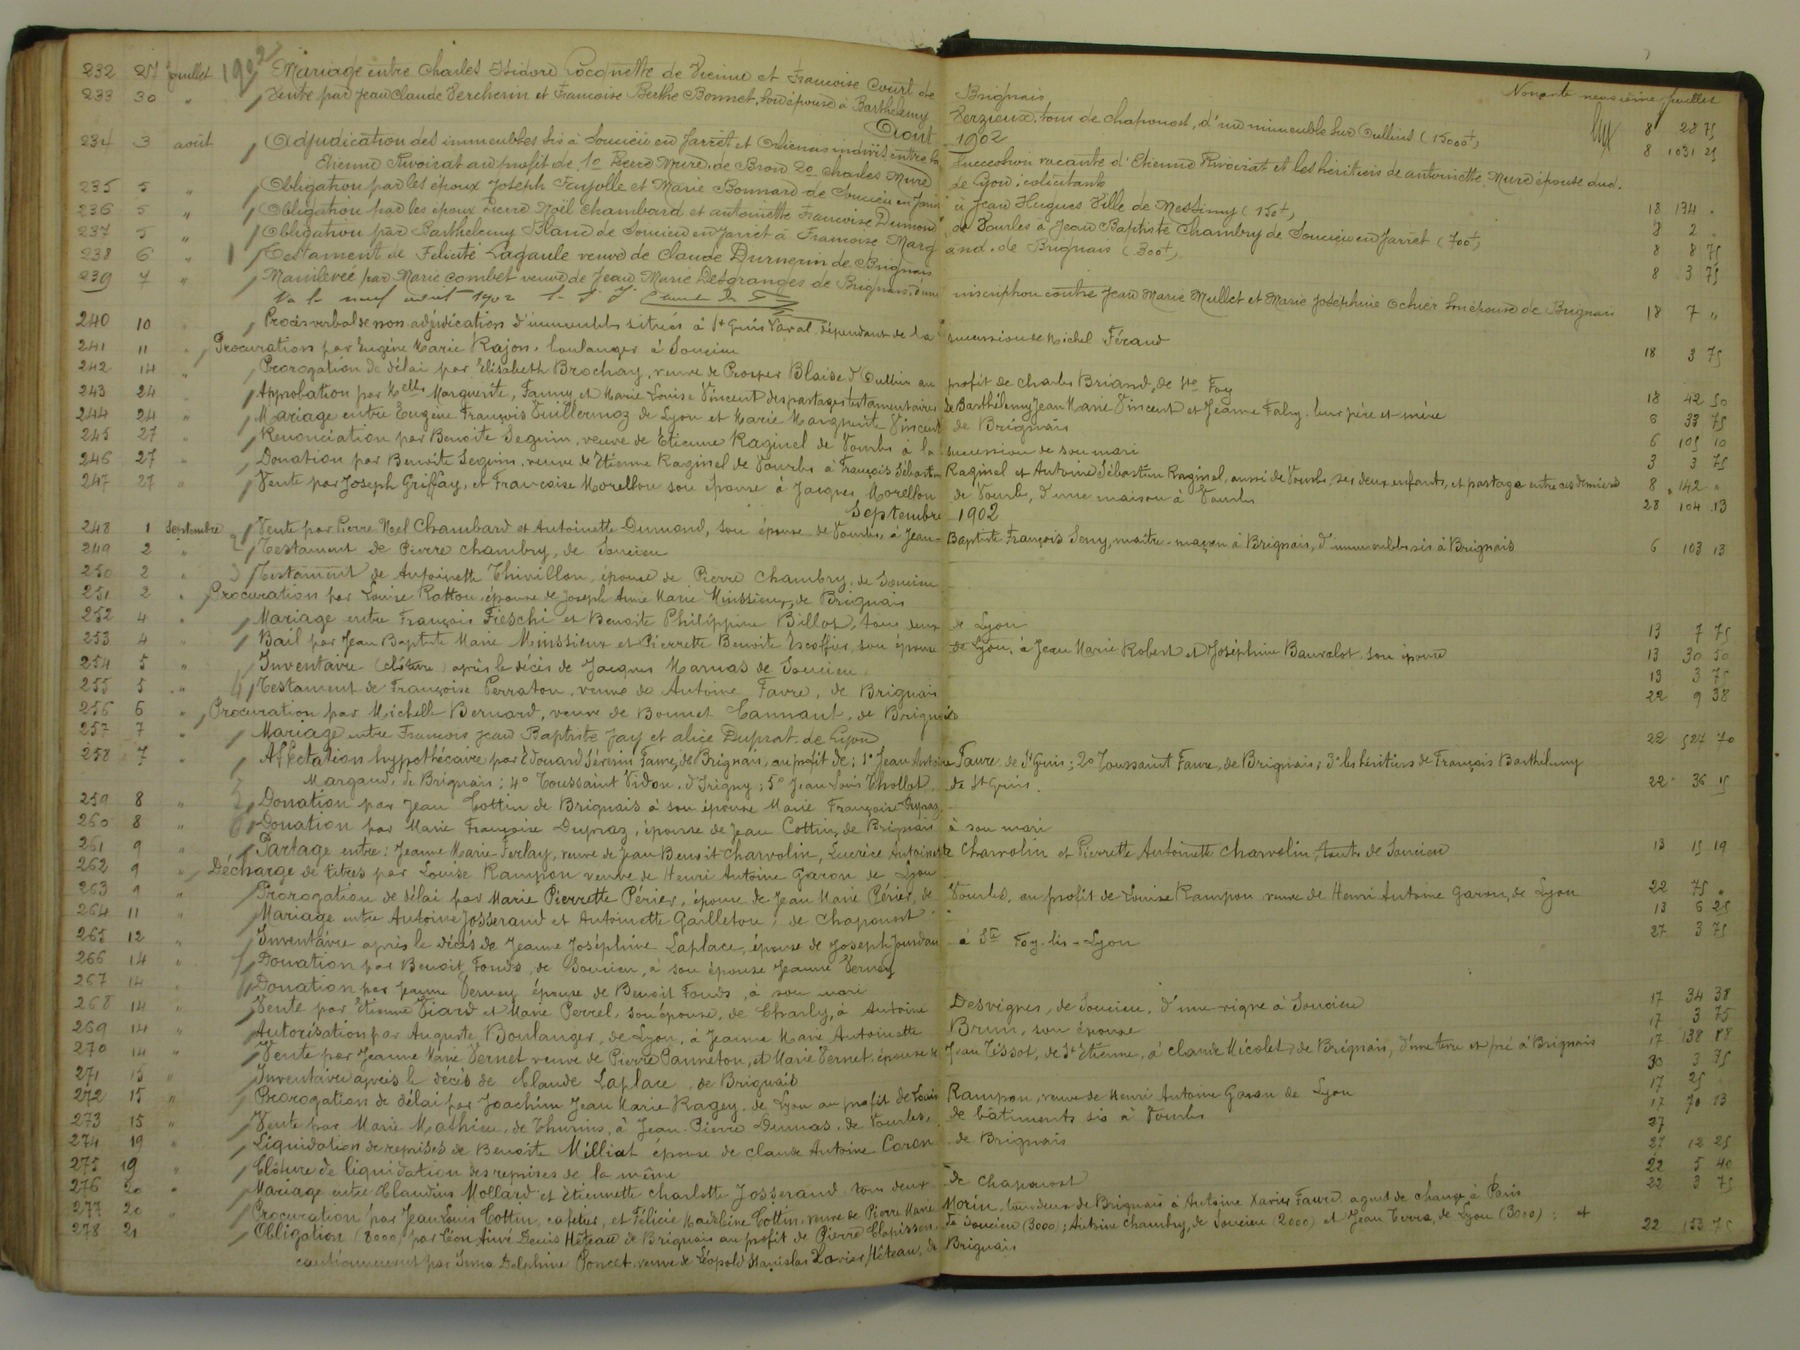 Nonante neuvième feuillet
232 27 juillet 1902 Mariage entre Charles Isidore Cocquette de Vienne et Francoise Court de Brignais 8 28 75
233 30 " Vente par Jean Claude Vercherin et Francoise Berthe Bonnet, son épouse à Barthélemy Verzieux, tous de chaponost, d'un immeuble sur Oullins (15000f) 8 1031 25
Aout 1902
234 3 août Adjudication des immeubles sis à Soucieu en Jarret et Orliénas indivis entre la succession vacante d'Etienne Rivoirat et les héritiers de antoinette Mure épouse dud.
Etienne Rivoirat au profit de 1o Pierre Mure, de Bron 2o Charles Mure de Lyon, colicitants
235 5 " Obligation par les époux Joseph Fayolle et Marie Bonnard de Soucieu en Jarret à Jean Hugues Ville de Messimy (150f) 18 134 "
236 5 " Obligation par les époux Pierre Noël Chambard et antoinette Francoise Dumond de Vourles à Jean Baptiste Chambry de Soucieu en Jarret (700f) 8 2 "
237 5 " Obligation par Barthelemy Blanc de Soucieu en Jarret à Francoise Marg and, de Brignais (300f) 8 8 75
238 6 " 1 Testament de Felicité Lagaule veuve de Claude Durnerin de Brignais 8 3 75
239 7 " Mainlevée par Marie Combet veuve de Jean Marie Desgranges de Brignais, d'une inscription contre Jean Marie Mullet et Marie Joséphine Ochier son épouse de Brignais 18 7 "
Vu le neuf aout 1902
240 10 " Procès verbal de non adjudication d'immeubles situés à St Genis Laval dépendant de la succession de Michel Féraud
241 11 " Procuration par Eugène Marie Rajon, boulanger à Soucieu 18 3 75
242 14 " Prorogation de délai par Elisabeth Brochay, veuve de Prosper Blaise d'Oullins au profit de Charles Briand, de Ste Foy
243 24 " Approbation par Melles Marguerite, Fanny et Marie Louise Vincent des partages testamentaires de Barthélemy Jean Marie Vincent et Jeanne Faby, leur père et mère 18 42 50
244 24 " Mariage entre Eugène François Vuillermoz de Lyon et Marie Marguerite Vincent de Brignais 6 33 75
245 27 " Renonciation par Benoite Seguin, veuve de Etienne Raginel de Vourles à la succession de son mari 6 105 10
246 27 " Donation par Benoite Seguin, veuve de Etienne Raginel de Vourles à François Sébastien Raginel et Antoine Sébastien Raginel, aussi de Vourles, ses deux enfants, et partage entre ces derniers 3 3 75
247 27 " Vente par Joseph Griffay, et Francoise Morellon son épouse à Jacques Morellon de Vourles, d'une maison à Vourles 8 142 "
28 104 13
Septembre 1902
248 1 Septembre Vente par Pierre Noel Chambard et Antoinette Dumond, son épouse de Vourles, à Jean-Baptiste François Seny, maître-maçon à Brignais, d'immeubles sis à Brignais 6 103 13
249 2 " 2 Testament de Pierre Chambry, de Soucieu
250 2 " 3 Testament de Antoinette Thivillon, épouse de Pierre Chambry, de Soucieu
251 2 " Procuration par Louise Rattou, épouse de Joseph Anne Marie Minssieux, de Brignais
252 4 " Mariage entre François Fieschi et Benoite Philippine Billot, tous deux de Lyon 13 7 75
253 4 " Bail par Jean Baptiste Marie Minssieux et Pierrette Benoite Escoffier, son épouse de Lyon, à Jean Marie Robert et Joséphine Bauvalot, son épouse 13 30 50
254 5 " Inventaire (clôture) après le décès de Jacques Marnas de Soucieu 13 3 75
255 5 " 4 Testament de Françoise Perraton, veuve de Antoine Favre, de Brignais 22 9 38
256 6 " Procuration par Michelle Bernard, veuve de Bonnet Cannaut, de Brignais
257 7 " Mariage entre Francois Jean Baptiste Jay et alice Duprat, de Lyon 22 527 70
258 7 " Affectation hypothécaire par Edouard Séverin Favre, de Brignais, au profit de ; 1o Jean Antoine Favre, de St Genis ; 2o Toussaint Favre, de Brignais ; 3o les héritiers de François Barthélemy
Margaud, de Brignais ; 4o Toussaint Vidon, d'Irigny ; 5o Jean Louis Thollet, de St Genis. 22 36 15
259 8 " 5 Donation par Jean Cottin de Brignais à son épouse Marie Françoise Dupraz
260 8 " 6 Donation par Marie Françoise Dupraz, épouse de Jean Cottin, de Brignais à son mari
261 9 " Partage entre : Jeanne Marie Ferlay, veuve de Jean Benoit Charvolin, Lucrèce Antoinette Charvolin et Pierrette Antoinette Charvolin, toutes de Soucieu 13 15 19
262 9 " Décharge de titres par Louise Rampon veuve de Henri Antoine Garon de Lyon
263 9 " Prorogation de délai par Marie Pierrette Périer, épouse de Jean Marie Périer, de Vourles, au profit de Louise Rampon veuve de Henri Antoine Garon, de Lyon 22 75 "
264 11 " Mariage entre Antoine Josserand et Antoinette Gailleton, de Chaponost 13 6 25
265 12 " Inventaire après le décès de Jeanne Joséphine Laplace, épouse de Joseph Jourdan à Ste Foy-lès-Lyon 27 3 75
266 14 " 7 Donation par Benoit Fonds, de Soucieu, à son épouse Jeanne Vernay
267 14 " 8 Donation par Jeanne Vernay épouse de Benoit Fonds, à son mari
268 14 " Vente par Etienne Viard et Marie Perrel, son épouse, de Charly, à Antoine Desvignes, de Soucieu, d'une vigne à Soucieu 17 34 38
269 14 " Autorisation par Auguste Boulanger, de Lyon, à Jeanne Marie Antoinette Brun, son épouse 17 3 75
270 14 " Vente par Jeanne Marie Vernet veuve de Pierre Panneton, et Marie Vernet, épouse de Jean Tissot, de St Etienne, à Claude Nicolet, de Brignais, d'une terre et pré à Brignais 17 138 88
271 15 " Inventaire après le décès de Claude Laplace, de Brignais 30 3 75
272 15 " Prorogation de délai par Joachim Jean Marie Ragey, de Lyon au profit de Louise Rampon, veuve de Henri Antoine Garon de Lyon 17 25 "
273 15 " Vente par Marie Mathieu, de Thurins, à Jean-Pierre Dumas, de Vourles, de bâtiments sis à Vourles 17 70 13
274 19 " Liquidation de reprises de Benoite Milliat épouse de Claude Antoine Coron de Brignais 27 12 25
275 19 " Clôture de liquidation des reprises de la même 22 5 40
276 20 " Mariage entre Claudius Mollard et Etiennette Charlotte Josserand tous deux de Chaponost 22 3 75
277 20 " Procuration par Jean Louis Cottin, cafetier, et Félicie Madeleine Cottin, veuve de Pierre Marie Morin, tous deux de Brignais à Antoine Xavier Favre, agent de change, à Paris
278 21 " Obligation (8000) par Léon Aimé Denis Héteau de Brignais au profit de Pierre Clapisson de Soucieu (3000) ; Antoine Chambry, de Soucieu (2000) et Jean Terra, de Lyon (3000) : et 22 153 75
cautionnement par Irma Delphine Poncet, veuve de Léopold Stanislas Xavier Héteau, de Brignais